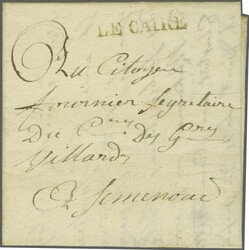 LE CAIRE
Au Citoyen
fournier Segretaire
Du C.res Des G.res
Villard,
A Semenoud